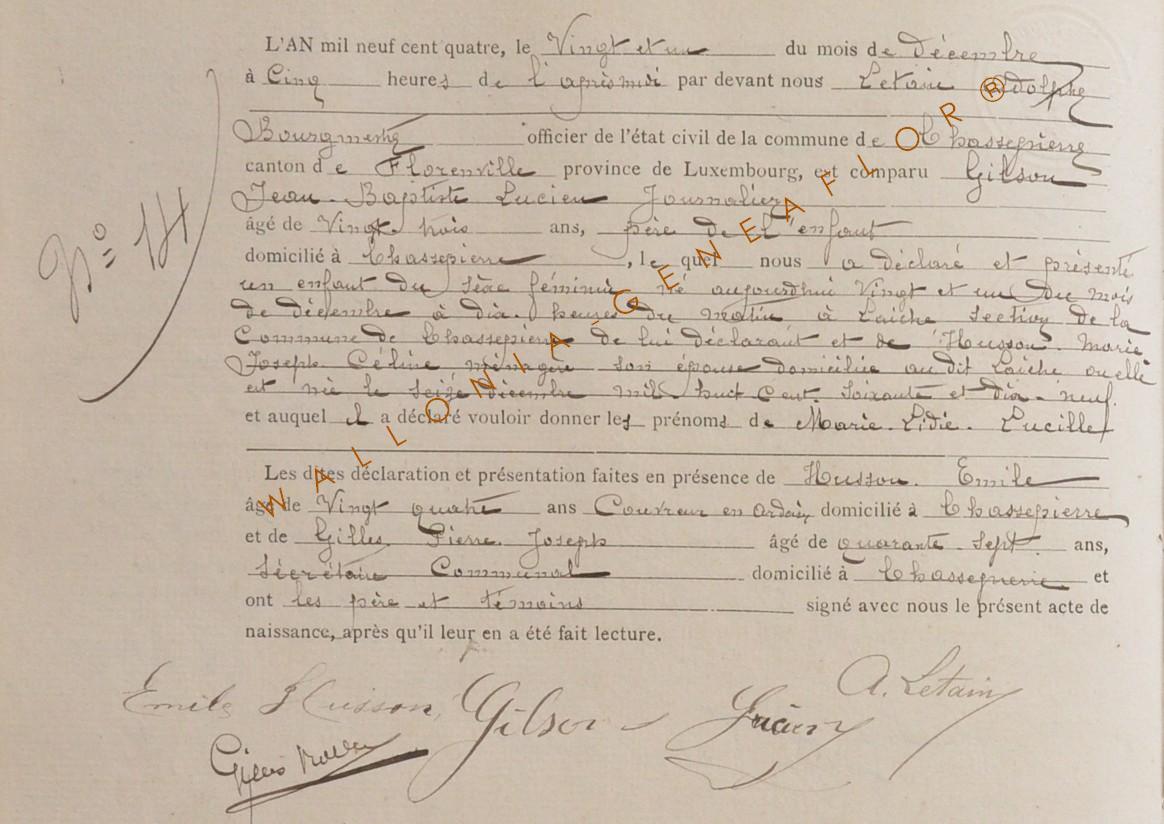 L'AN mil neuf cent quatre, le Vingt et un du mois de décembre
à Cinq heures de l'après midi par devant nous Letain Adolphe
Bourgmestre officier de l'état civil de la commune de Chassepierre
canton de Florenville province de Luxembourg, est comparu Gilson
Jean-Baptiste Lucien Journalier
âgé de Vingt trois ans, père de l'enfant
domicilié à Chassepierre, lequel nous a déclaré et présenté
N° 14
un enfant du sèxe féminin né aujourdhui Vingt et un du mois
de décembre à dix heures du matin à Laiche Section de la
Commune de Chassepierre de lui déclarant et de Husson Marie
Joseph Céline ménagère son épouse domiciliée au dit Laiche où elle
est née le seize décembre mil huit Cent Soixante et dix-neuf.
et auquel il a déclaré vouloir donner les prénoms de Marie Lidie Lucille
Les dites déclaration et présentation faites en présence de Husson Emile
âgé de Vingt quatre ans Couvreur en Ardoises domicilié à Chassepierre
et de Gilles Pierre Joseph âgé de quarante Sept ans,
Sécrétaire Communal domicilié à Chassepierre et
ont les père et témoins signé avec nous le présent acte de
naissance, après qu'il leur en a été fait lecture.
Emile Husson Gilson Lucien A. Letain
Gilles
WALLONIA-GENEAFLOR ®